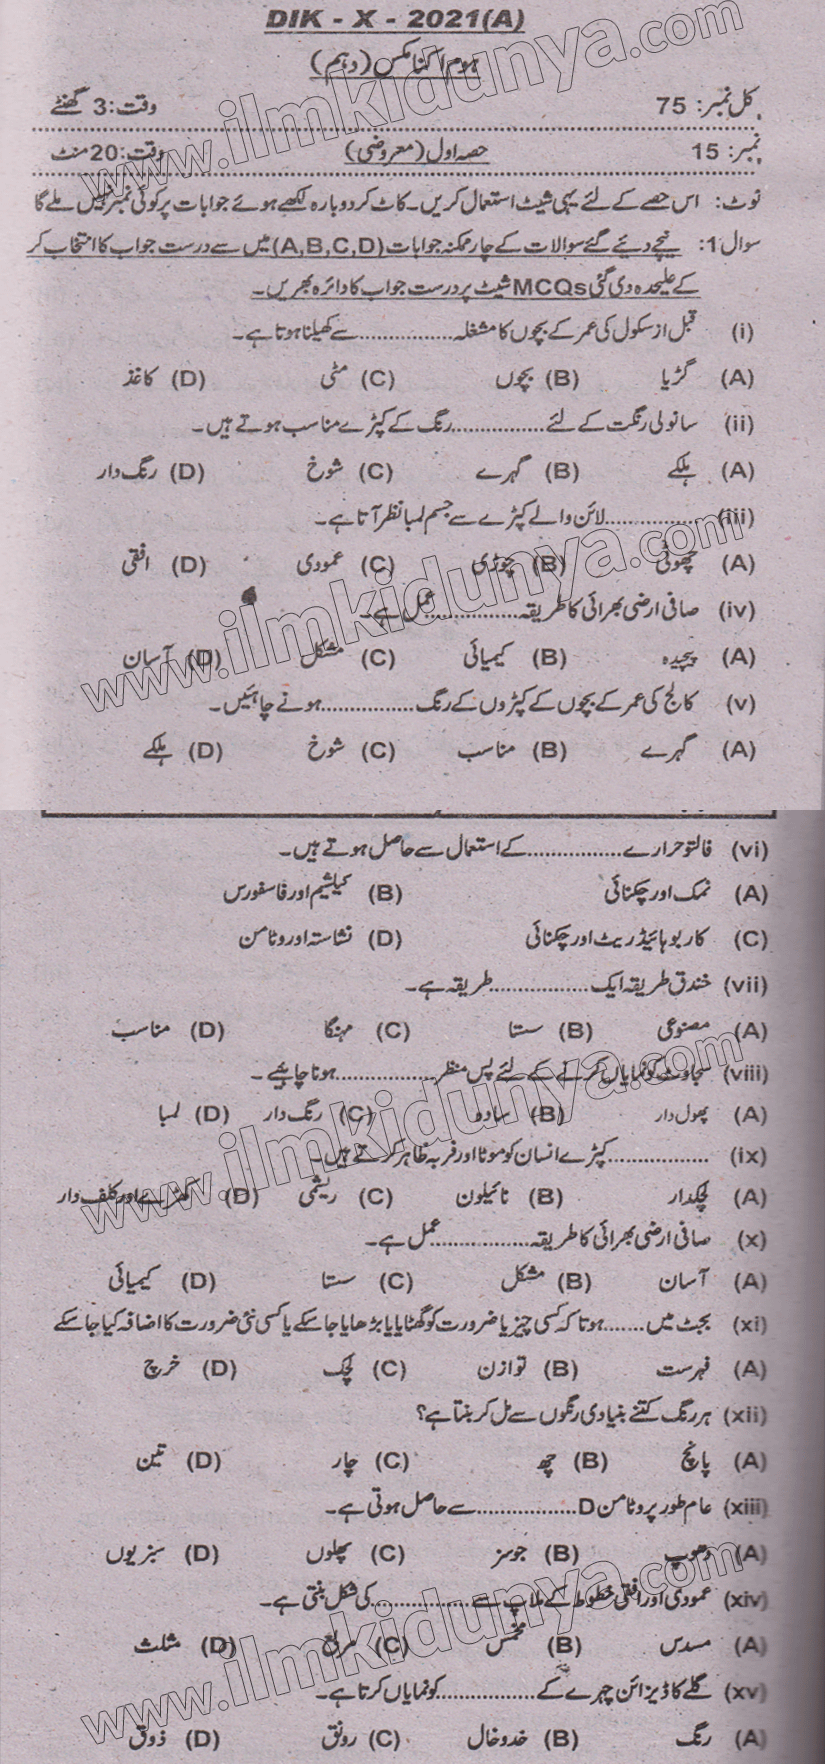 DIK - X - 2021(A)
ہوم اکنامکس (دہم)
کل نمبر: 75 وقت: 3 گھنٹے
نمبر: 15 حصہ اول (معروضی) وقت: 20 منٹ
نوٹ: اس حصے کے لئے یہی شیٹ استعمال کریں۔ کاٹ کر دوبارہ لکھے ہوئے جوابات پر کوئی نمبر نہیں ملے گا
سوال 1: نیچے دیئے گئے سوالات کے چار ممکنہ جوابات (A,B,C,D) میں سے درست جواب کا انتخاب کر
کے علیحدہ دی گئی MCQs شیٹ پر درست جواب کا دائرہ بھریں۔
(i) قبل از سکول کی عمر کے بچوں کا مشغلہ ................ سے کھیلنا ہوتا ہے۔
(A) گڑیا (B) بچوں (C) مٹی (D) کاغذ
(ii) سانولی رنگت کے لئے ................ رنگ کے کپڑے مناسب ہوتے ہیں۔
(A) ہلکے (B) گہرے (C) شوخ (D) رنگ دار
(iii) ................ لائن والے کپڑے سے جسم لمبا نظر آتا ہے۔
(A) چھوٹی (B) چوڑی (C) عمودی (D) افقی
(iv) صافی ارضی بھرائی کا طریقہ ................ عمل ہے۔
(A) پیچیدہ (B) کیمیائی (C) مشکل (D) آسان
(v) کالج کی عمر کے بچوں کے کپڑوں کے رنگ ................ ہونے چاہئیں۔
(A) گہرے (B) مناسب (C) شوخ (D) ہلکے
(vi) فالتو حرارے ................ کے استعمال سے حاصل ہوتے ہیں۔
(A) نمک اور چکنائی (B) کیلشیم اور فاسفورس
(C) کاربوہائیڈریٹ اور چکنائی (D) نشاستہ اور وٹامن
(vii) خندق طریقہ ایک ................ طریقہ ہے۔
(A) مصنوعی (B) سستا (C) مہنگا (D) مناسب
(viii) سجاوٹ کو نمایاں کرنے کے لئے پس منظر ................ ہونا چاہیے۔
(A) پھول دار (B) سادہ (C) رنگ دار (D) لمبا
(ix) ................ کپڑے انسان کو موٹا اور فربہ ظاہر کرتے ہیں۔
(A) لچکدار (B) نائیلون (C) ریشمی (D) کھڑے اور کلف دار
(x) صافی ارضی بھرائی کا طریقہ ................ عمل ہے۔
(A) آسان (B) مشکل (C) سستا (D) کیمیائی
(xi) بجٹ میں ....... ہو تا کہ کسی چیز یا ضرورت کو گھٹایا یا بڑھایا جا سکے یا کسی نئی ضرورت کا اضافہ کیا جا سکے
(A) فہرست (B) توازن (C) لچک (D) خرچ
(xii) ہر رنگ کتنے بنیادی رنگوں سے مل کر بنتا ہے؟
(A) پانچ (B) چھ (C) چار (D) تین
(xiii) عام طور پر وٹامن D ................ سے حاصل ہوتی ہے۔
(A) دھوپ (B) جوسز (C) پھلوں (D) سبزیوں
(xiv) عمودی اور افقی خطوط کے ملاپ سے ................ کی شکل بنتی ہے۔
(A) مسدس (B) مخمس (C) مربع (D) مثلث
(xv) گلے کا ڈیزائن چہرے کے ................ کو نمایاں کرتا ہے۔
(A) رنگ (B) خدوخال (C) رونق (D) ذوق
www.ilmkidunya.com
www.ilmkidunya.com
www.ilmkidunya.com
www.ilmkidunya.com